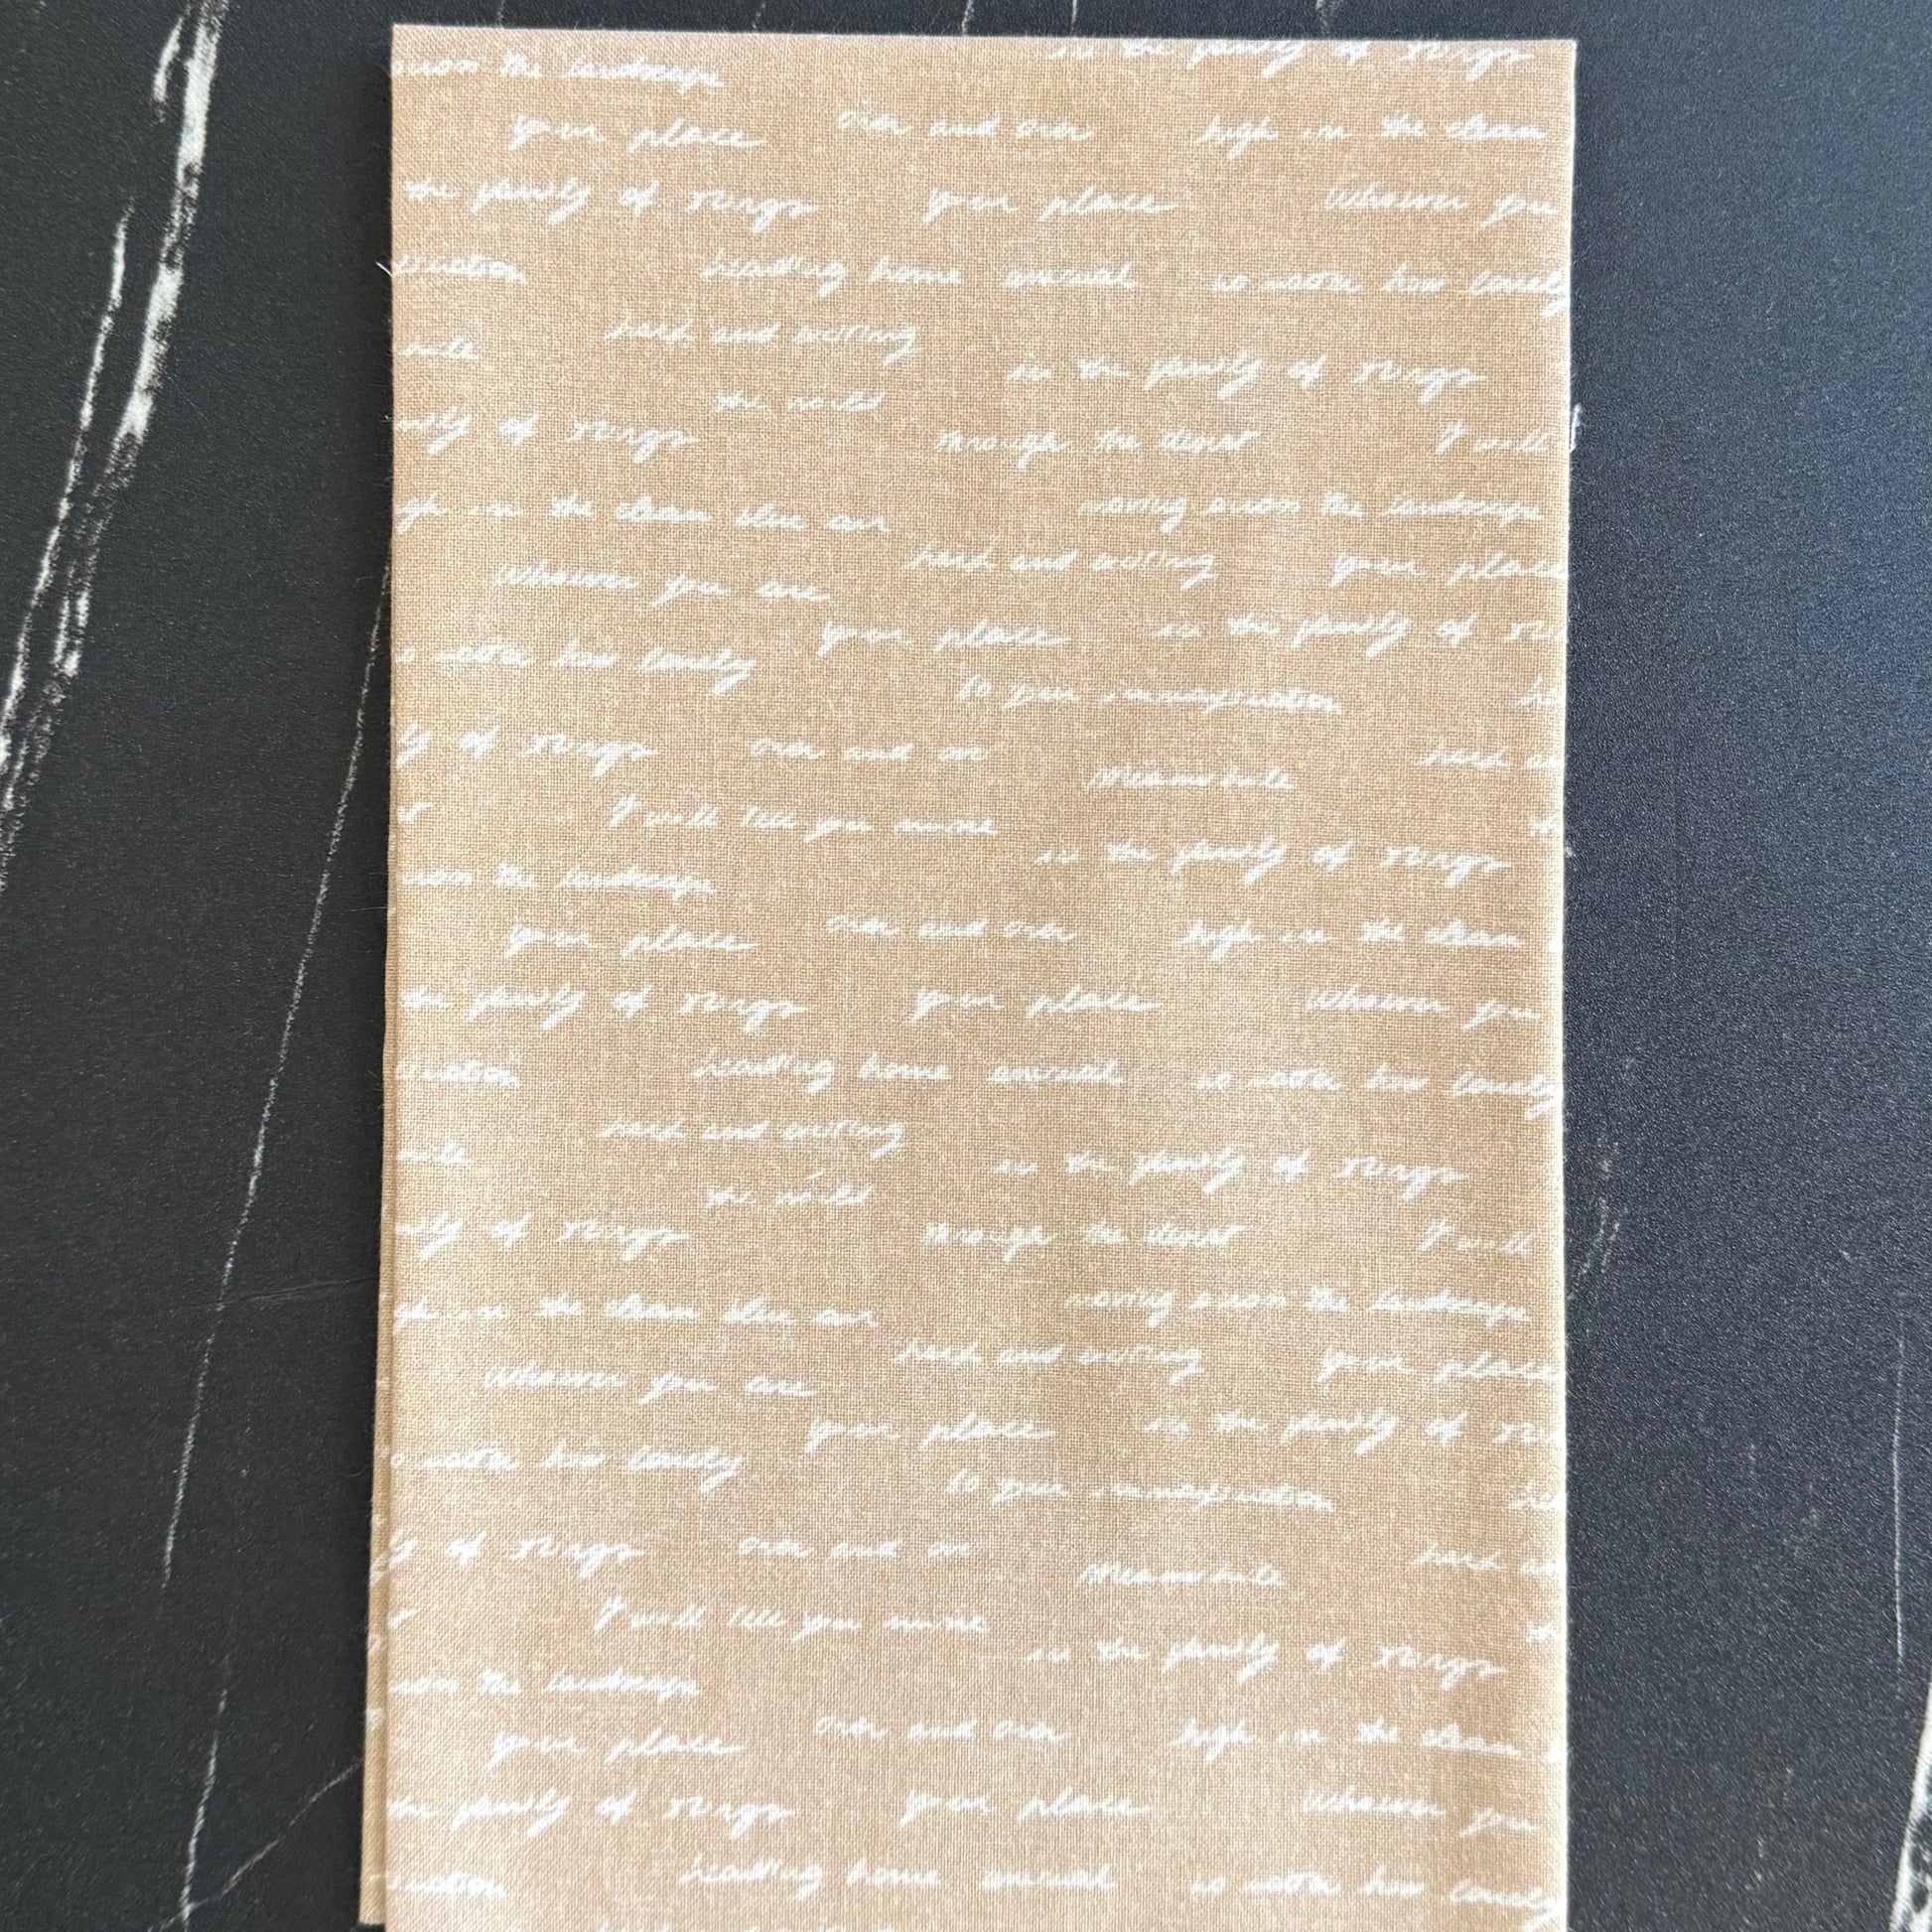 in the family of things
the landscape
your place over and over high in the clean
the family of things your place Whoever you
heading home announcing no matter how lonely
harsh and exciting
in the family of things
the world
of things through the desert I will
in the clean blue air moving across the landscape
harsh and exciting your place
Whoever you are
your place in the family of
matter how lonely
to your imagination
of things over and over harsh
Meanwhile
I will tell you mine
in the family of things
the landscape
your place over and over high in the clean
the family of things your place Whoever you
heading home no matter how lonely
harsh and exciting
in the family of things
the world
of things through the desert I will
in the clean blue air moving across the landscape
harsh and exciting your place
Whoever you are
your place in the family of
matter how lonely
to your imagination
of things over and harsh
Meanwhile
I will tell you mine
in the family of things
the landscape
your place over and over high in the clean
the family of things your place Whoever you
heading home no matter how lonely